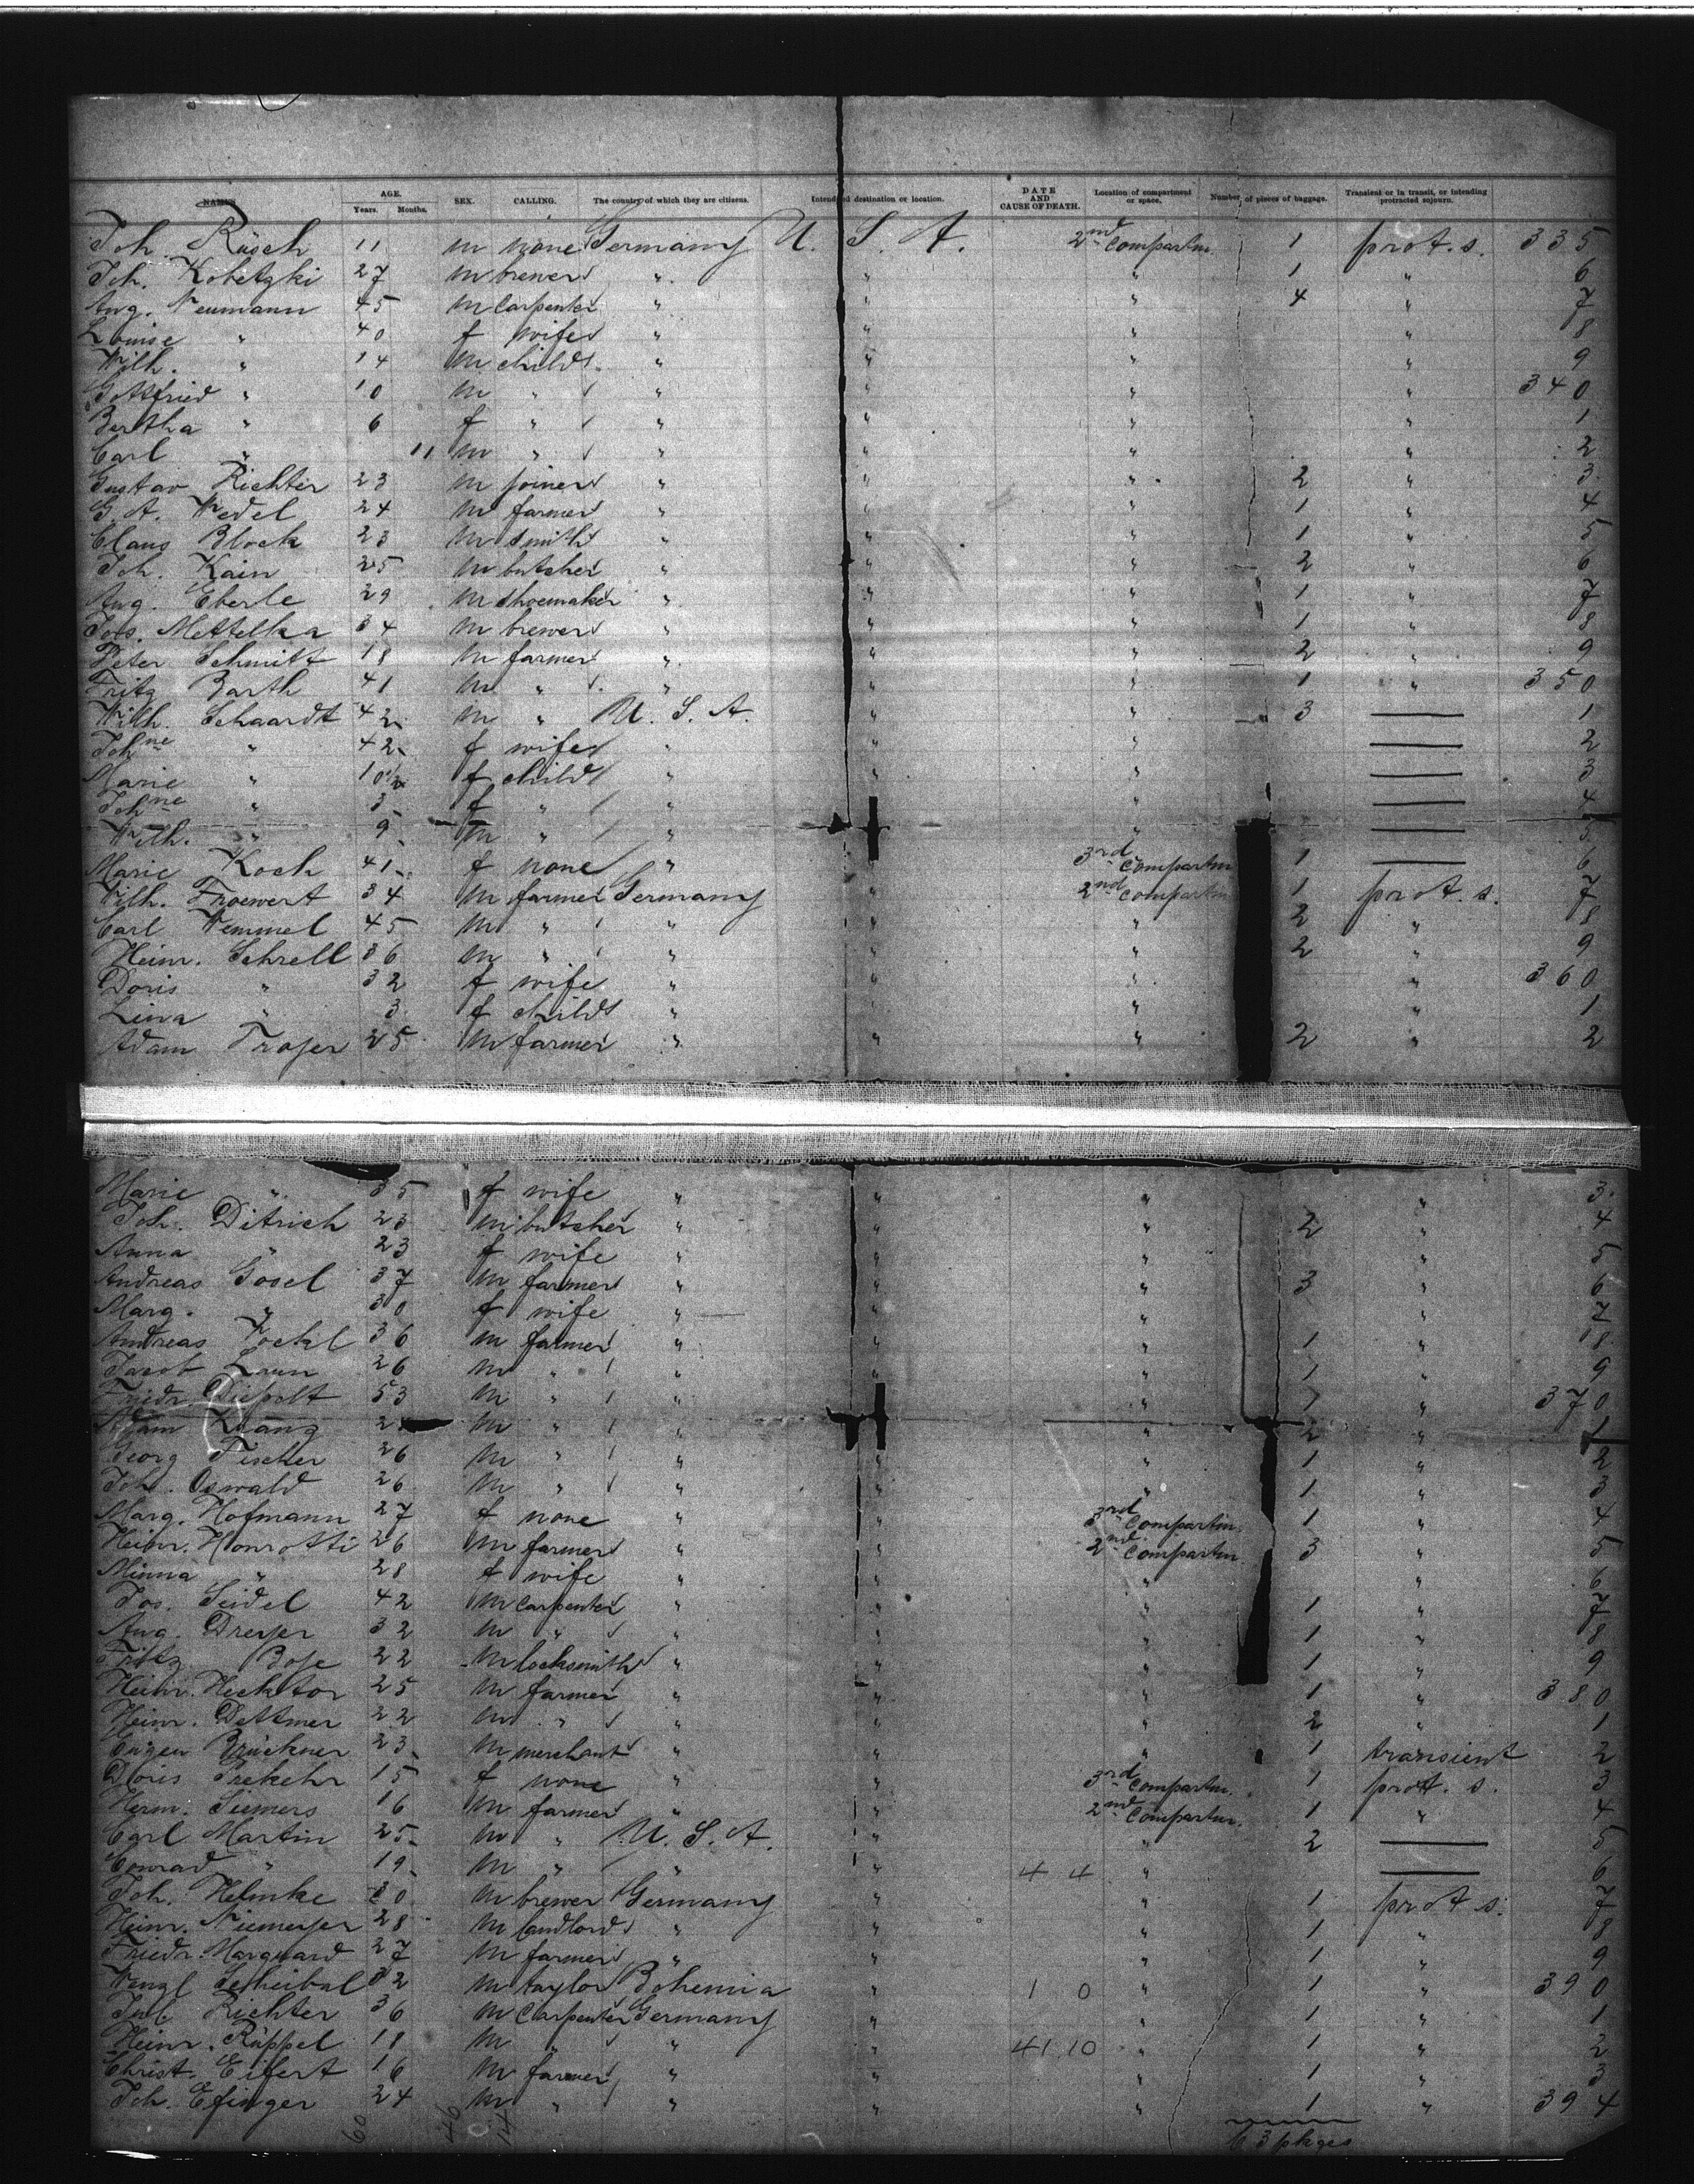 NAMES AGE. Years. Months. SEX. CALLING. The country of which they are citizens. Intended destination or location. DATE AND CAUSE OF DEATH. Location of compartment or space. Number of pieces of baggage. Transient or in transit, or intending protracted sojourn.
Joh. Rüsch 11 m none Germany U. S. A. 2nd Compartm. 1 prot. s. 335
Joh. Kobetzki 27 m brewer " " " 1 " 6
Aug. Neumann 45 m carpenter " " " 4 " 7
Louise " 40 f wife " " " " 8
Wilh. " 14 m child " " " " 9
Gottfried " 10 m " " " " " 340
Bertha " 6 f " " " " " 1
Carl " 11 m " " " " " 2
Gustav Richter 23 m joiner " " " 2 " 3
G. A. Wedel 24 m farmer " " " 1 " 4
Claus Block 23 m smith " " " 1 " 5
Joh. Kain 25 m butcher " " " 2 " 6
Aug. Eberle 29 m shoemaker " " " 1 " 7
Jos. Mettelka 34 m brewer " " " 1 " 8
Peter Schmitt 18 m farmer " " " 2 " 9
Fritz Barth 41 m " " " " 1 " 350
Wilh. Schaardt 42 m " U. S. A. " " 3 — 1
Johne " 42 f wife " " " — 2
Marie " 10½ f child " " " — 3
Johne " 3 f " " " " — 4
Wilh. " 9 m " " " " — 5
Marie Koch 41 f none " " 3rd Compartm 1 — 6
Wilh. Froewert 34 m farmer Germany " 2nd Compartm 1 prot. s. 7
Carl Wemmel 45 m " " " " 2 " 8
Heinr. Schrell 36 m " " " " 2 " 9
Doris " 32 f wife " " " " 360
Lina " 3 f child " " " " 1
Adam Troyer 25 m farmer " " " 2 " 2
Marie " 35 f wife " " " " 3
Joh. Ditrich 23 m butcher " " " 2 " 4
Anna " 23 f wife " " " " 5
Andreas Gosel 37 m farmer " " " 3 " 6
Marg. " 30 f wife " " " " 7
Andreas Vockl 36 m farmer " " " 1 " 8
Jacob Laun 26 m " " " " 1 " 9
Friedr. Diepolt 53 m " " " " 1 " 370
Adam Krang 2 m " " " " 2 " 1
Georg Fischer 26 m " " " " 1 " 2
Joh. Oswald 26 m " " " " 1 " 3
Marg. Hofmann 27 f none " " 3rd Compartm. 1 " 4
Heinr. Honrotti 26 m farmer " " 2nd Compartm. 3 " 5
Minna " 28 f wife " " " " 6
Jos. Seidel 42 m carpenter " " " 1 " 7
Aug. Dreyer 32 m " " " " 1 " 8
Fritz Boje 22 m locksmith " " " 1 " 9
Heinr. Hecktor 25 m farmer " " " 1 " 380
Heinr. Dettmer 22 m " " " " 2 " 1
Eugen Brückner 23 m merchant " " " 1 transient 2
Doris Prekehr 15 f none " " 3rd Compartm. 1 prot. s. 3
Herm. Siemers 16 m farmer " " 2nd Compartm. 1 " 4
Carl Martin 25 m " U. S. A. " " 2 — 5
Conrad " 19 m " " " 4 4 " — 6
Joh. Helmke 20 m brewer Germany " " 1 prot s. 7
Heinr. Niemeyer 28 m landlord " " " 1 " 8
Friedr. Marquard 27 m farmer " " " 1 " 9
Wenzl Scheibal 32 m taylor Bohemia " 1 0 " 1 " 390
Jul. Richter 36 m carpenter Germany " " 1 " 1
Heinr. Rüppel 18 m " " " 41.10 " 1 " 2
Christ. Eifert 16 m farmer " " " 1 " 3
Joh. Efinger 24 m " " " " 1 " 394
60 46 14 63 pkges